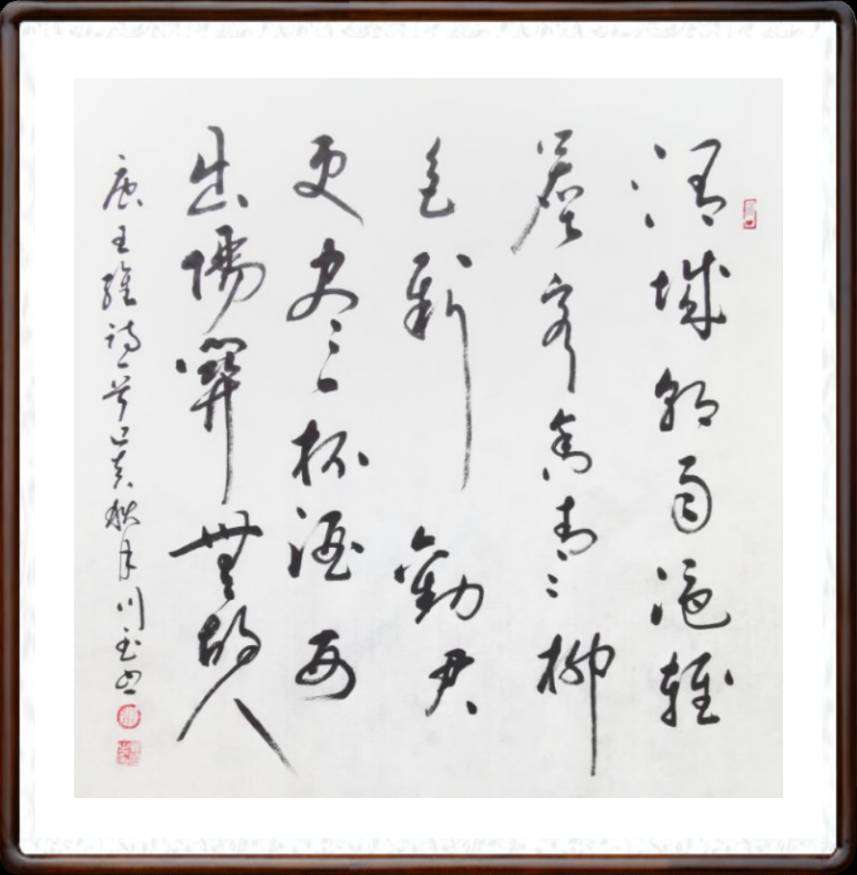 渭城朝雨浥輕
塵客舍青青柳
色新勸君
更尽一杯酒西
出陽關無故人
唐王維詩一首己亥秋月川玉书